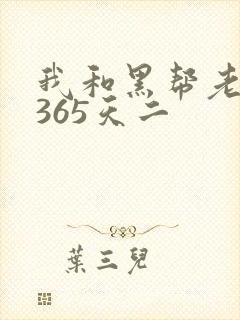 我和黑帮老
365天二
葉三兒